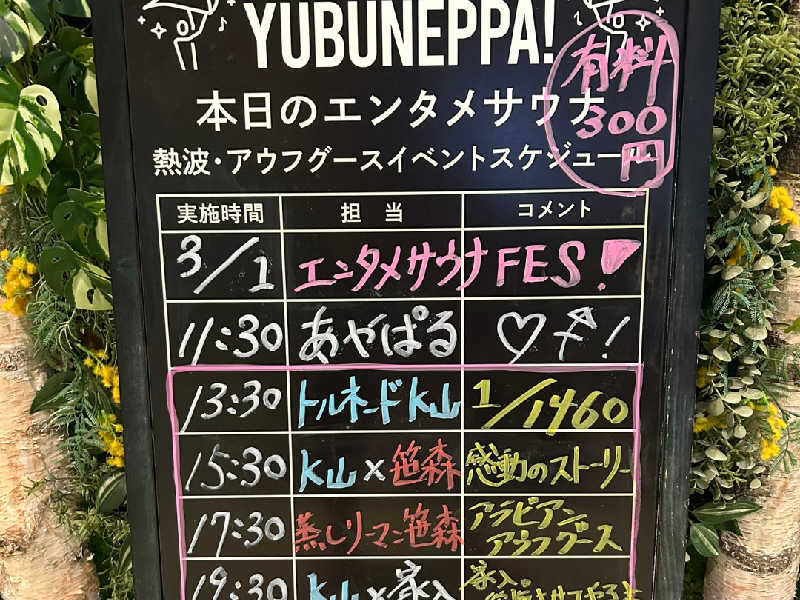 YUBUNEPPA!
本日のエンタメサウナ
有料
300
円
熱波・アウフグースイベントスケジュール
実施時間 担 当 コメント
3/1 エンタメサウナFES!
11:30 あやぱる ♡ !
13:30 トルネードK山 1/1460
15:30 K山×笹森 感動のストーリー
17:30 蒸しリーマン笹森 アラビアン
アウフグース
19:30 K山×家入 家入。